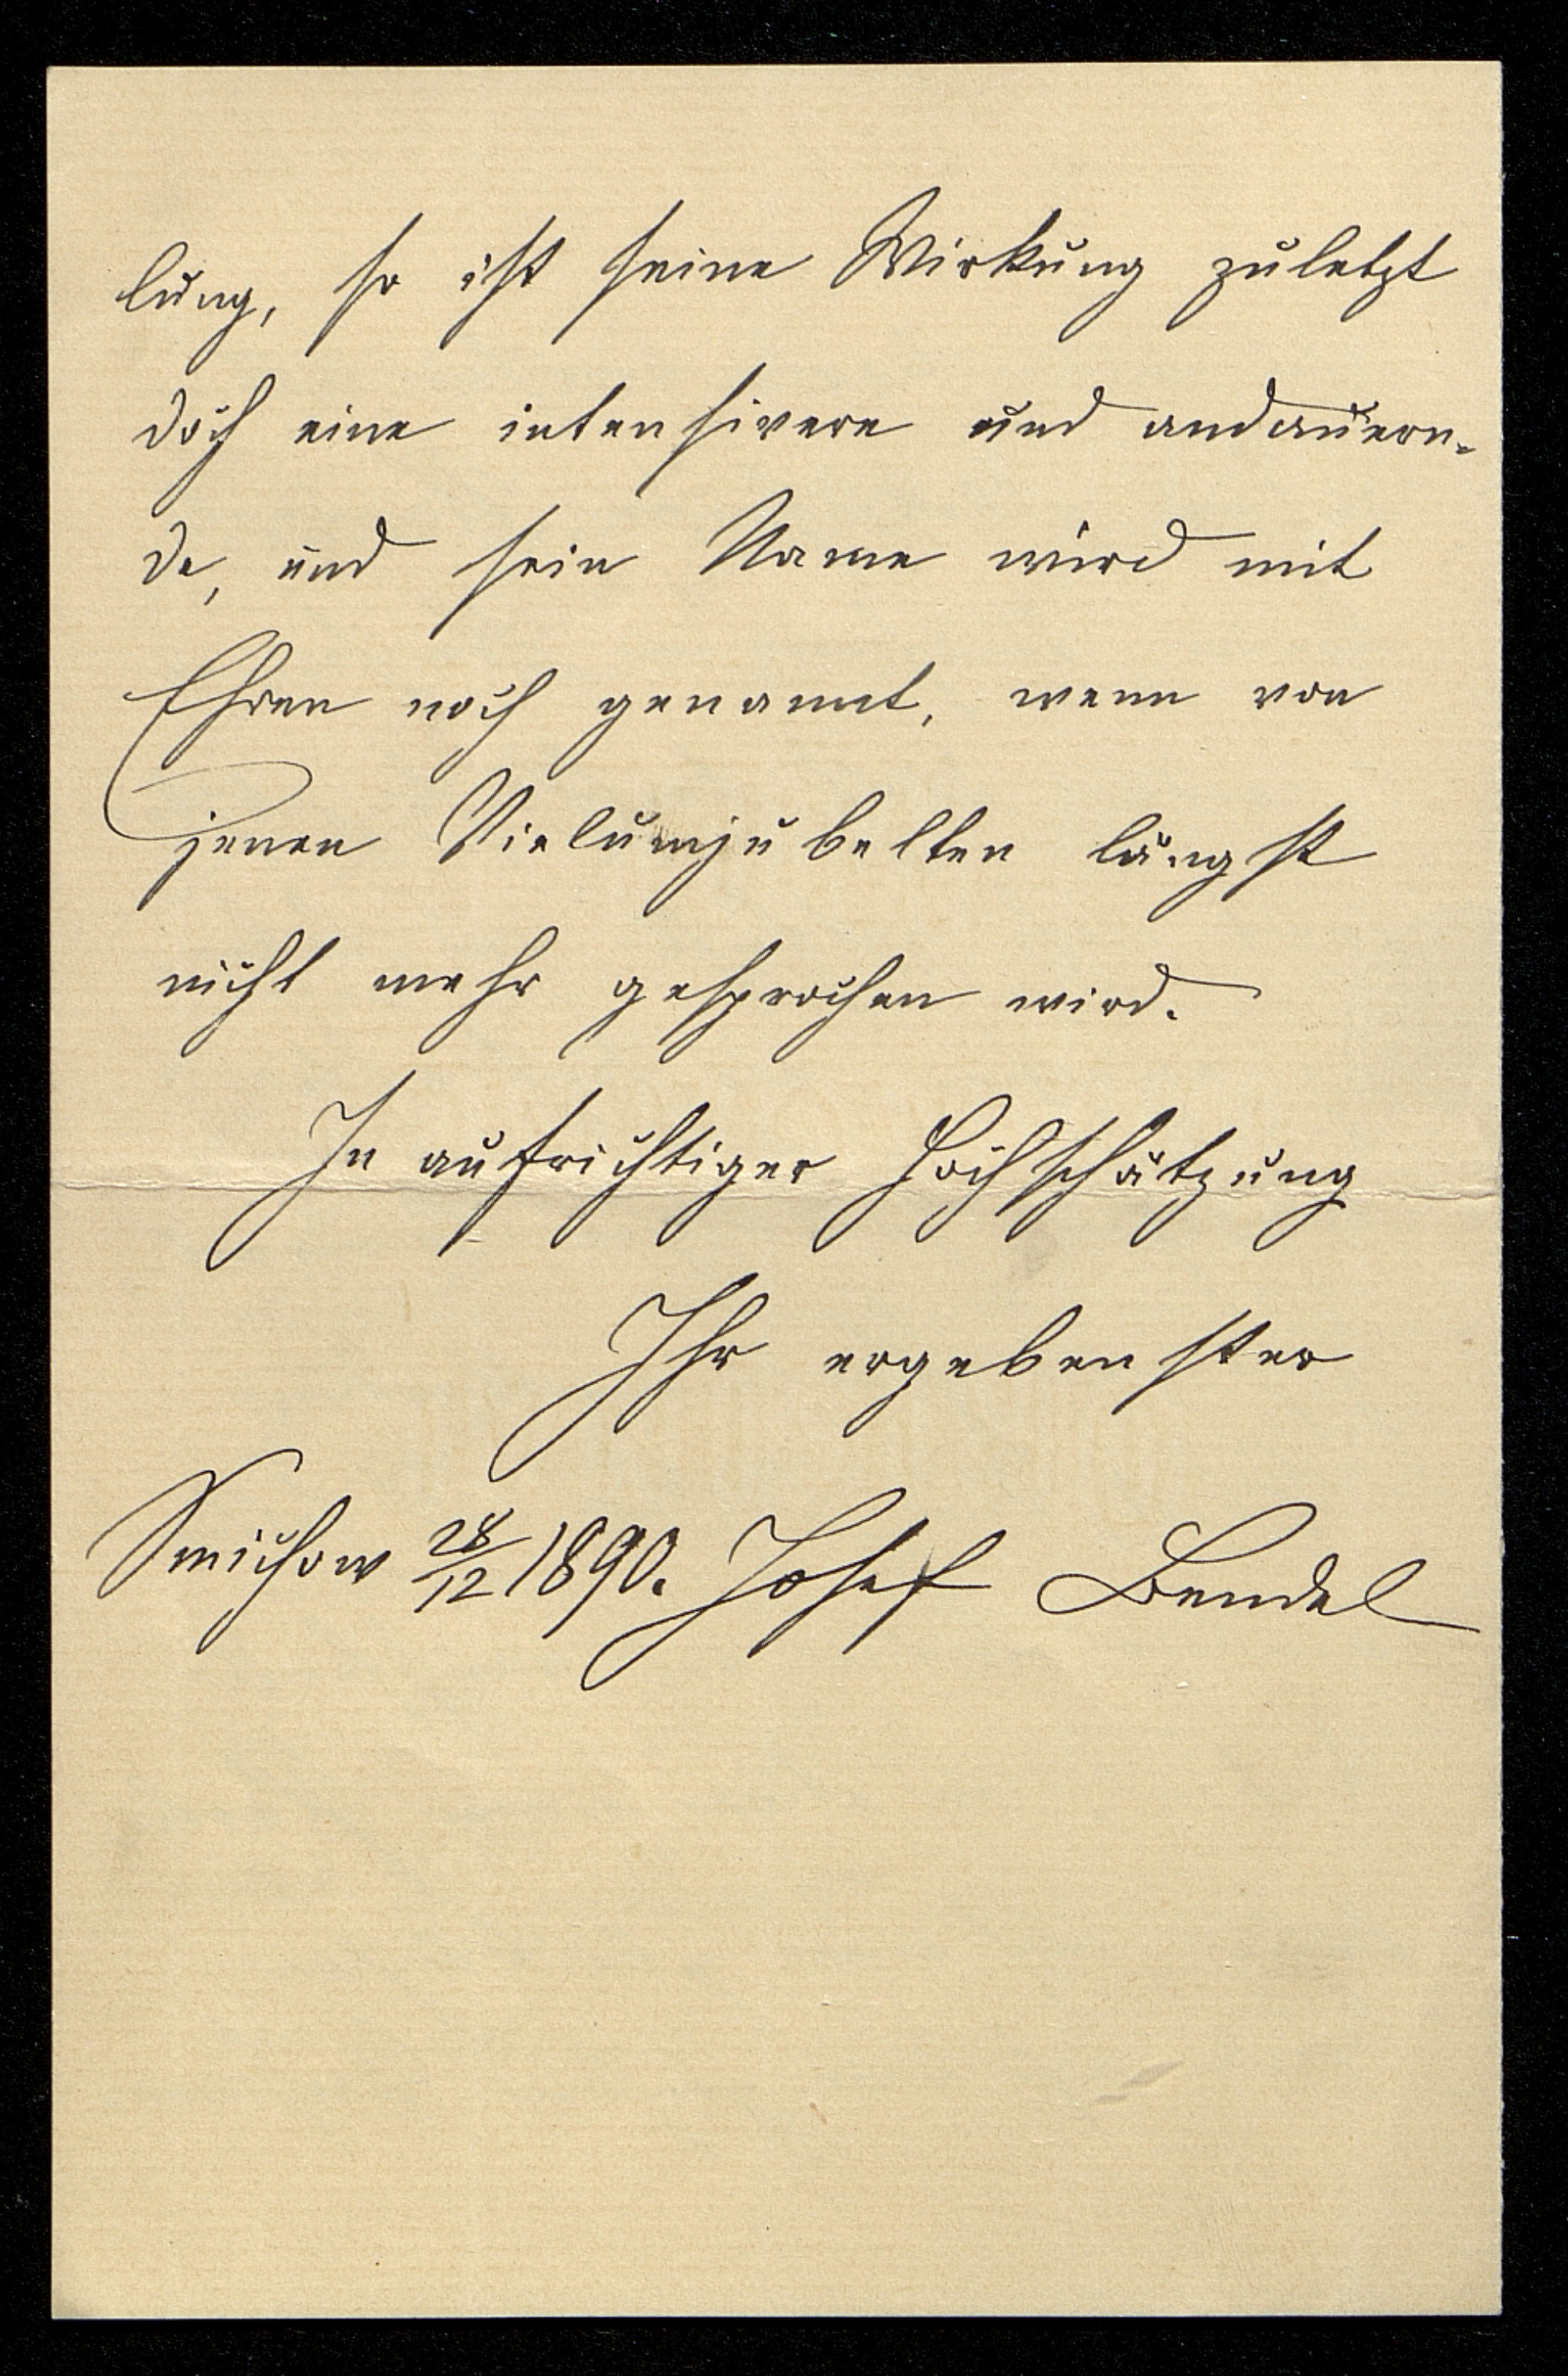 lung, so ist seine Wirkung zuletzt
doch eine intensivere und andauern-
de, und sein Name wird mit
Ehren noch genannt, wenn von
jenen Vielumjubelten längst
nicht mehr gesprochen wird.
In aufrichtiger Hochschätzung
Ihr ergebenster
Smichow 28/12 1890. Josef Bendel